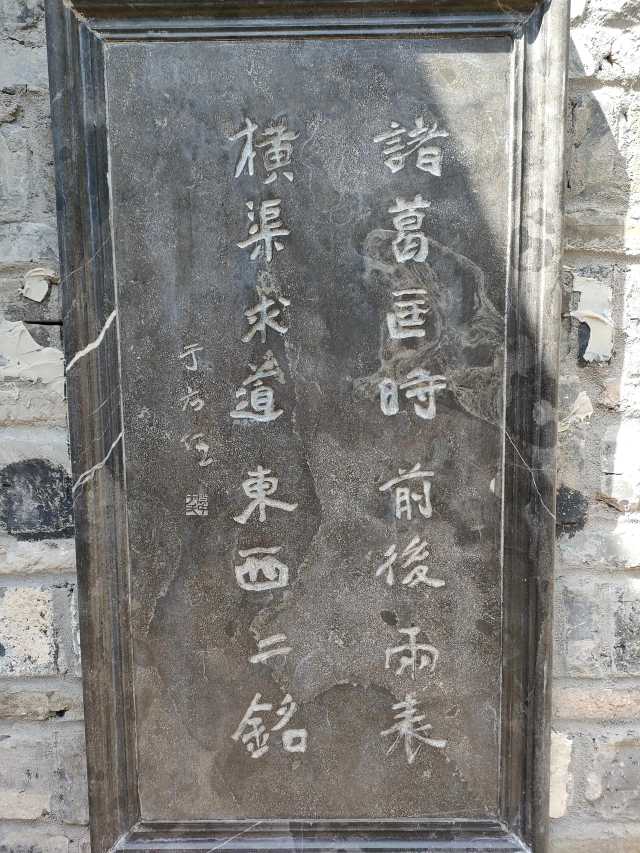 諸葛匡時前後兩表
橫渠求道東西二銘
于右任